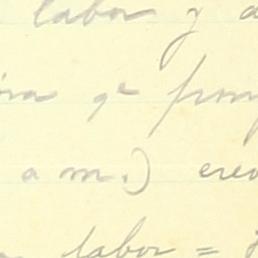 labor y a
ra qe prom
a m.) creo
labor =